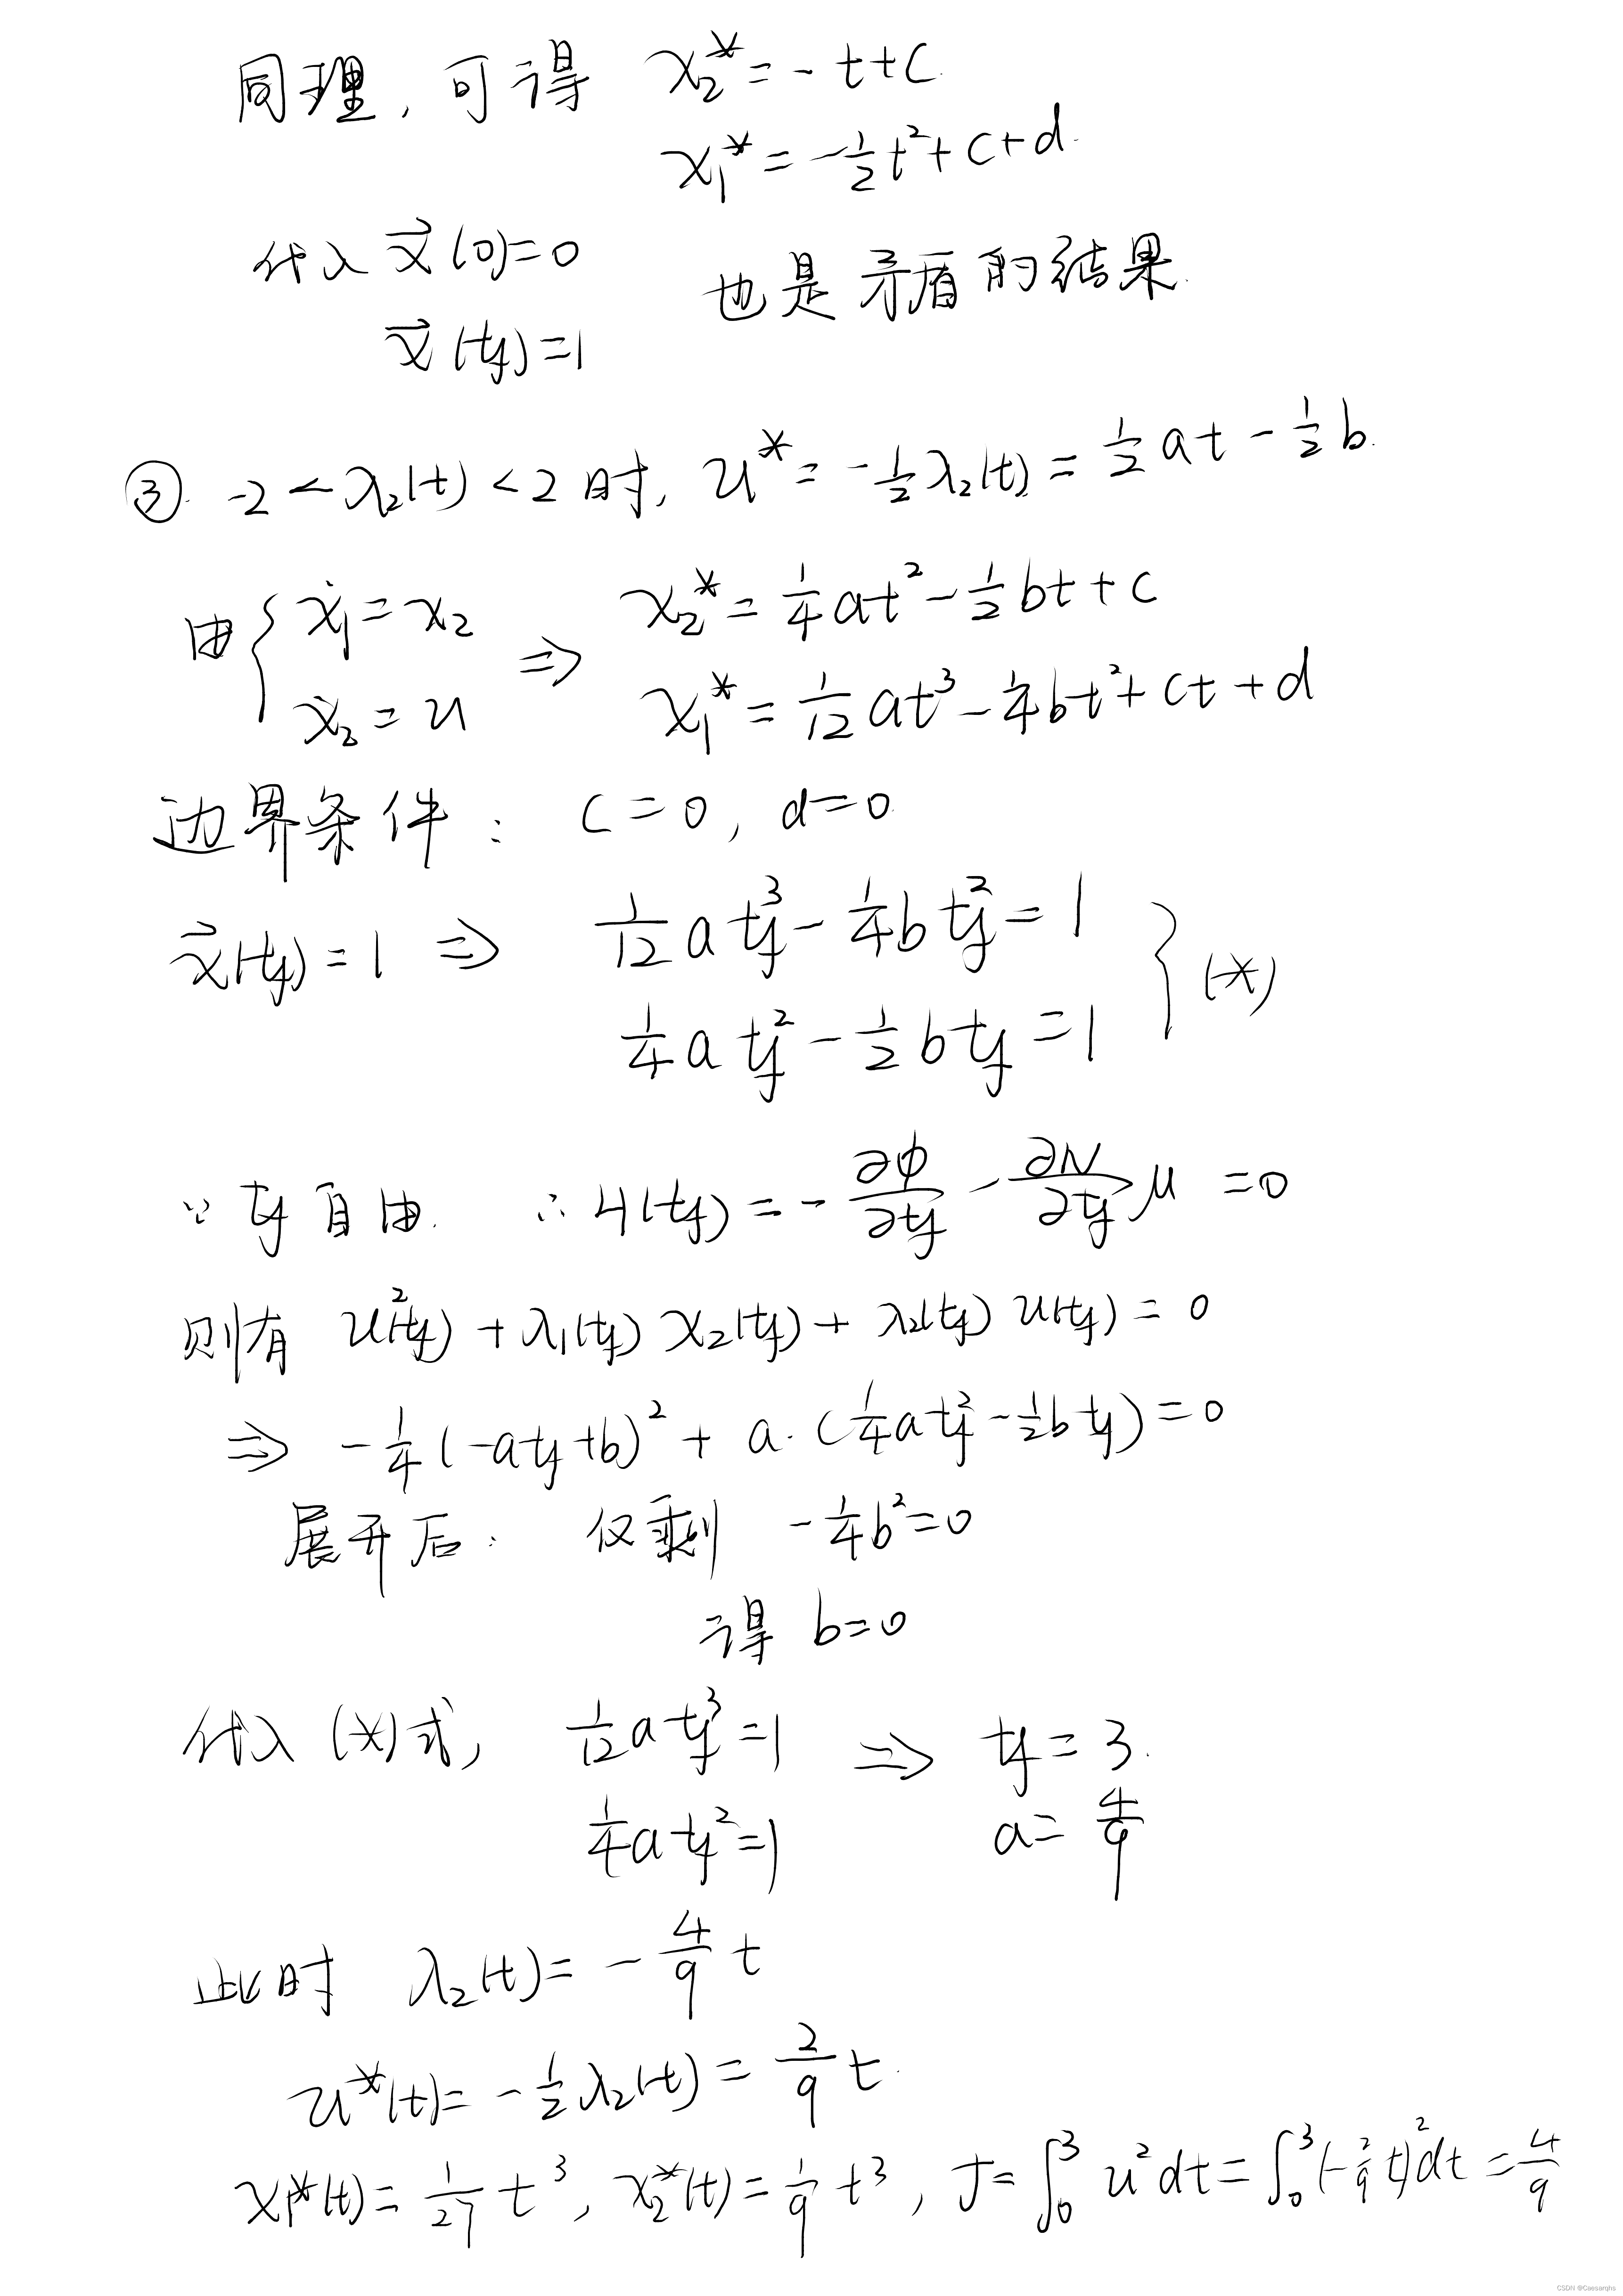 同理，可得 x₂* = -t+c
x₁* = -½t²+c+d.
代入 x⃗(0)=0 也是矛盾的结果.
x⃗(tf)=1
③. -2<λ₂(t)<2时, u* = -½λ₂(t) = ½at - ½b.
由 { ẋ₁=x₂ ⇒ x₂* = ¼at² - ½bt + c
ẋ₂=u x₁* = 1/12 at³ - ¼bt² + ct + d
边界条件: c=0, d=0.
x⃗(tf)=1 ⇒ 1/12 a tf³ - ¼b tf² = 1 } (*)
¼a tf² - ½b tf = 1
∵ tf 自由. ∴ H(tf) = -∂ϕ/∂tf - ∂N/∂tf μ = 0
则有 u²(tf) + λ₁(tf) x₂(tf) + λ₂(tf) u(tf) = 0
⇒ -¼(-atf+b)² + a·(¼a tf² - ½b tf) = 0
展开后: 仅剩 -¼b²=0
得 b=0
代入(*)式, 1/12 a tf³ = 1 ⇒ tf = 3.
¼a tf² = 1 a = 4/9
此时 λ₂(t) = -4/9 t
u*(t) = -½λ₂(t) = 2/9 t.
x₁*(t) = 1/27 t³, x₂*(t) = 1/9 t³, J = ∫₀³ u²dt = ∫₀³ (-2/9 t)²dt = 4/9
CSDN @Caesarghs